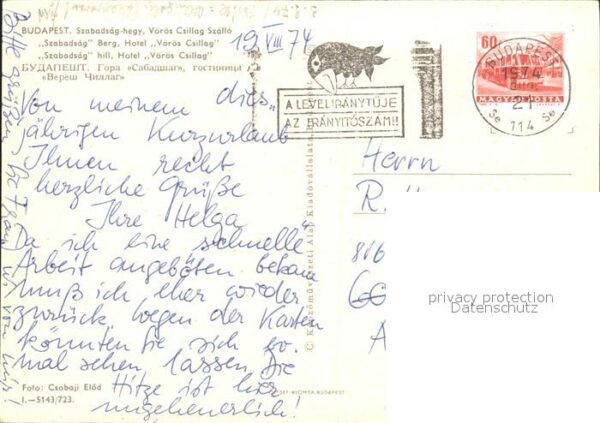 BUDAPEST. Szabadság-hegy, Vörös Csillag Szálló
„Szabadság" Berg, Hotel „Vörös Csillag"
„Szabadság" hill, Hotel „Vörös Csillag"
БУДАПЕШТ. Гора «Сабадшаг», гостиница
«Вереш Чиллаг»
19 VIII 74
A LEVÉL IRÁNYTŰJE
AZ IRÁNYÍTÓSZÁM!!
60
MAGYAR POSTA
BUDAPEST
1974
21
Se 114 Se
Von meinem dies-
jährigen Kurzurlaub
Ihnen recht
herzliche Grüße
Ihre Helga
Da ich eine schnelle
Arbeit angeboten bekam
muß ich eher wieder
zurück, wegen der Karten
könnten Sie sich ev.
mal sehen lassen. Die
Hitze ist hier
ungeheuerlich!
Bitte grüßen Sie
Herrn
R.
privacy protection
Datenschutz
Foto: Csobaji Előd
I.—5143/723.
© Képzőművészeti Alap Kiadóvállalata,
NYOMDA, BUDAPEST